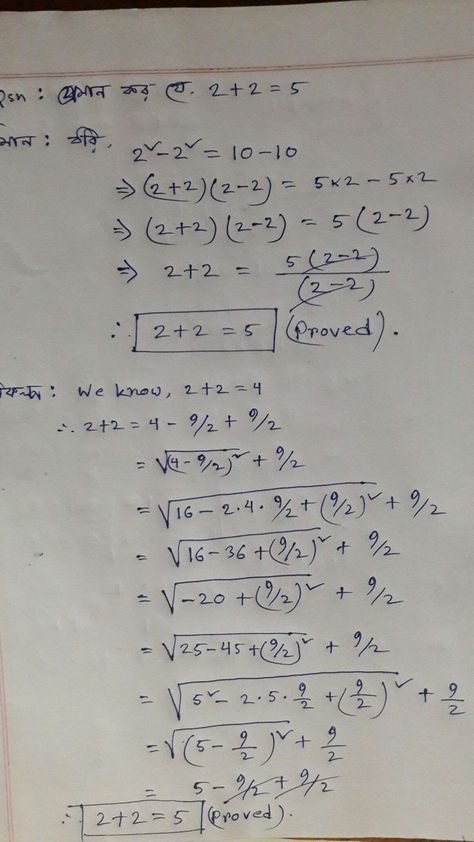 Qsn : প্রমান কর যে, 2+2=5
মান : ধরি,
2²-2² = 10-10
⇒ (2+2)(2-2) = 5×2 - 5×2
⇒ (2+2)(2-2) = 5(2-2)
⇒ 2+2 = 5(2-2)/(2-2)
∴ 2+2=5 (Proved).
We know, 2+2=4
∴ 2+2 = 4 - 9/2 + 9/2
= √(4-9/2)² + 9/2
= √16 - 2·4·9/2 + (9/2)² + 9/2
= √16-36+(9/2)² + 9/2
= √-20 + (9/2)² + 9/2
= √25-45+(9/2)² + 9/2
= √5² - 2·5·9/2 + (9/2)² + 9/2
= √(5 - 9/2)² + 9/2
= 5 - 9/2 + 9/2
∴ 2+2=5 (Proved).